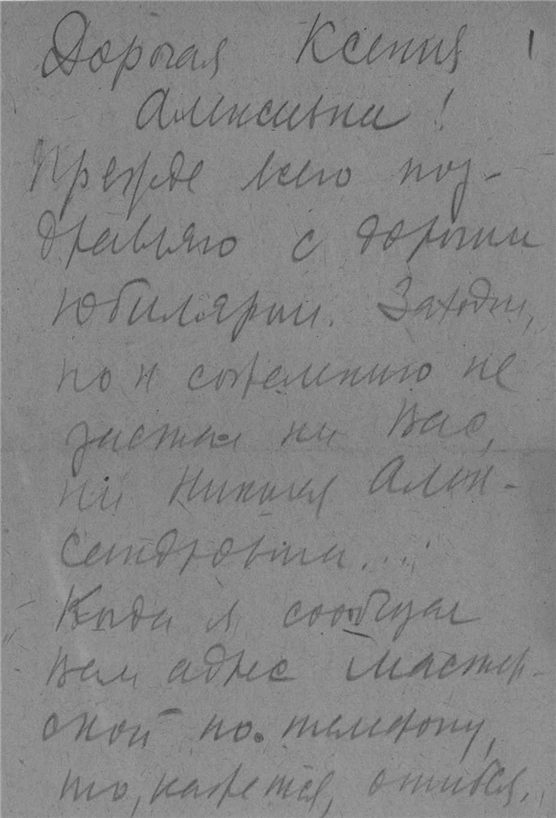 Дорогая Ксения 1
Алексеевна!
Прежде всего поз-
дравляю с дорогим
юбиляром. Заходил,
но к сожалению не
застал ни Вас,
ни Николая Алек-
сандровича...
Когда я сообщал
Вам адрес мастер-
ской по телефону,
то, кажется, ошибся.